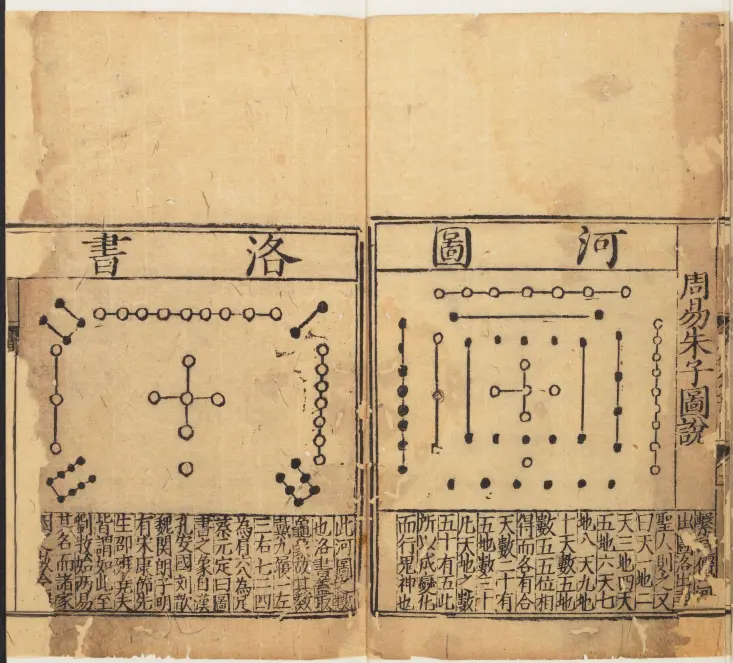 周易朱子圖說
河圖
繫傳河
出圖洛出書
聖人則之又
曰天一地二
天三地四天
五地六天七
地八天九地
十天數五地
數五五位相
得而各有合
天數二十有
五地數三十
凡天地之數
五十有五此
所以成變化
而行鬼神也
洛書
此河圖之數
也洛書蓋取
龜象故其數
戴九履一左
三右七二四
為肩六八為足
蔡元定曰圖
書之象自漢
孔安國劉歆
魏關朗子明
有宋康節先
生邵雍堯夫
皆謂如此至
劉牧始兩易
其名而諸家
因